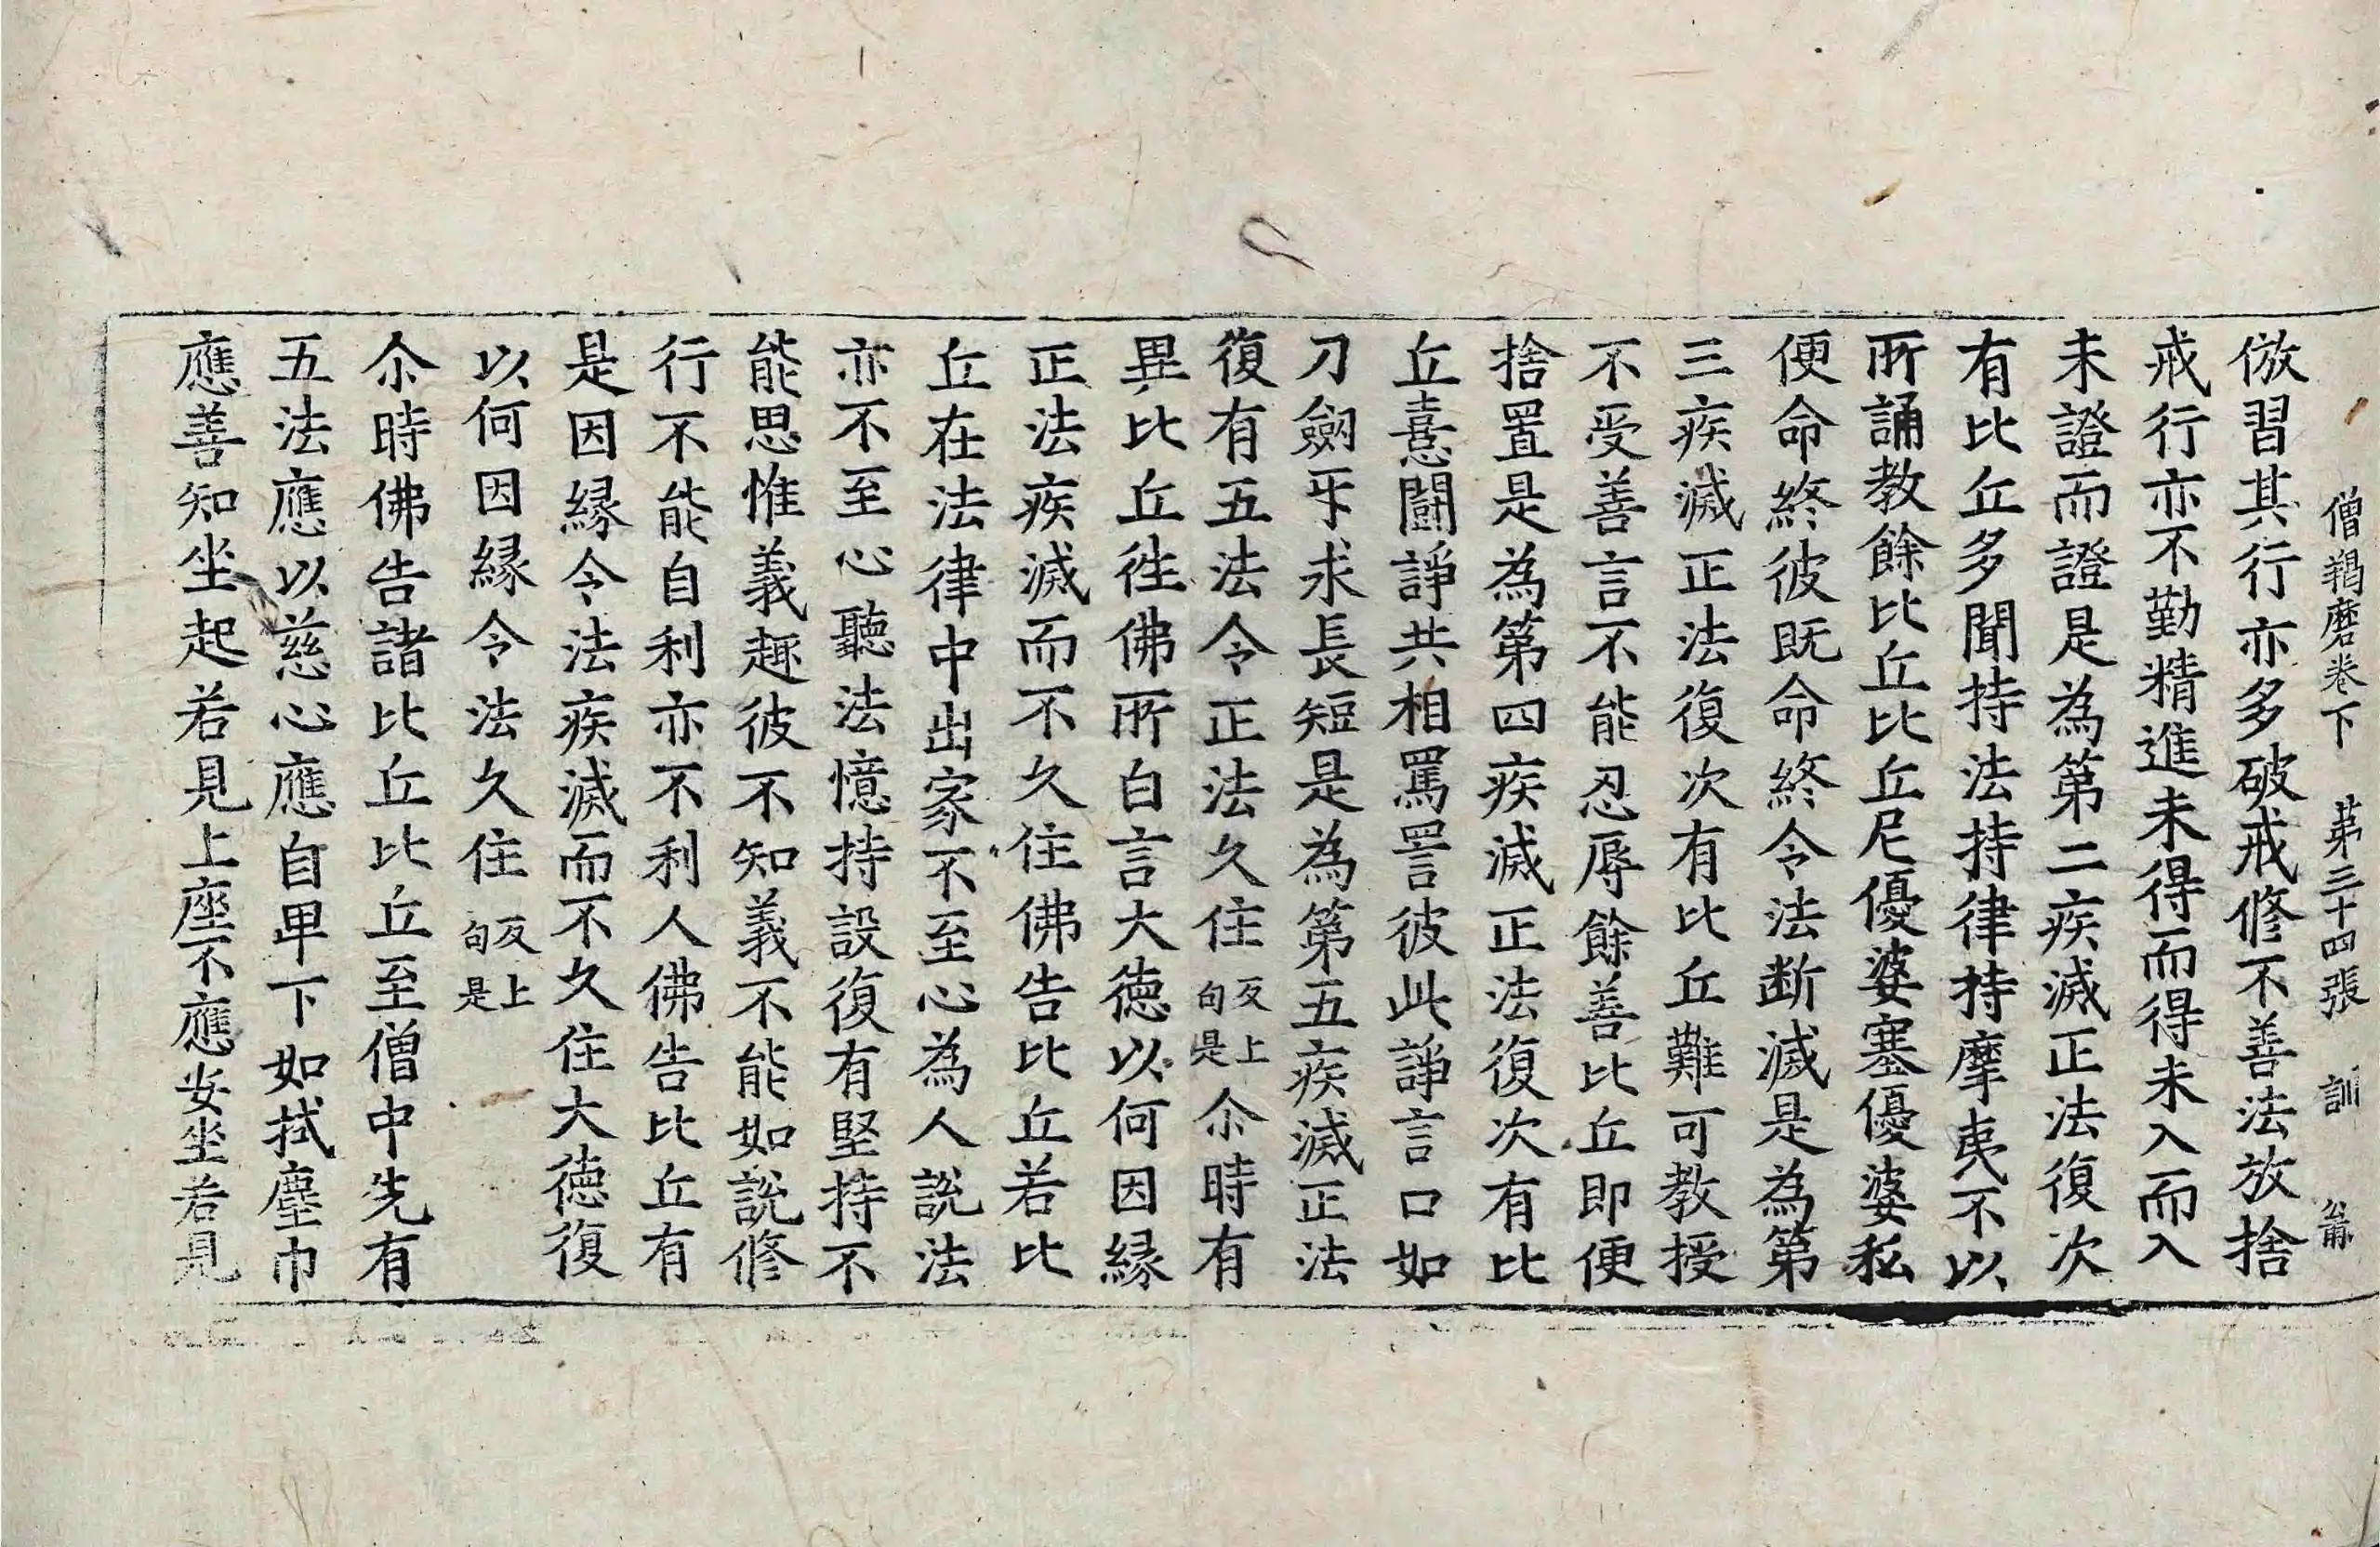 僧羯磨卷下　第三十四張　訓　
倣習其行亦多破戒修不善法放捨
戒行亦不勤精進未得而得未入而入
未證而證是為第二疾滅正法復次
有比丘多聞持法持律持摩夷不以
所誦教餘比丘比丘尼優婆塞優婆私
便命終彼既命終令法断滅是為第
三疾滅正法復次有比丘難可教授
不受善言不能忍辱餘善比丘即便
捨置是為第四疾滅正法復次有比
丘憙闘諍共相罵詈彼此諍言口如
刀劔㸦求長短是為第五疾滅正法
復有五法令正法久住反上句是尒時有
異比丘徃佛所白言大德以何因縁
正法疾滅而不久住佛告比丘若比
丘在法律中出家不至心為人説法
亦不至心聽法憶持設復有堅持不
能思惟義趣彼不知義不能如説修
行不能自利亦不利人佛告比丘有
是因縁令法疾滅而不久住大德復
以何因縁令法久住反上句是
尒時佛告諸比丘比丘至僧中先有
五法應以慈心應自卑下如拭塵巾
應善知坐起若見上座不應安坐若見